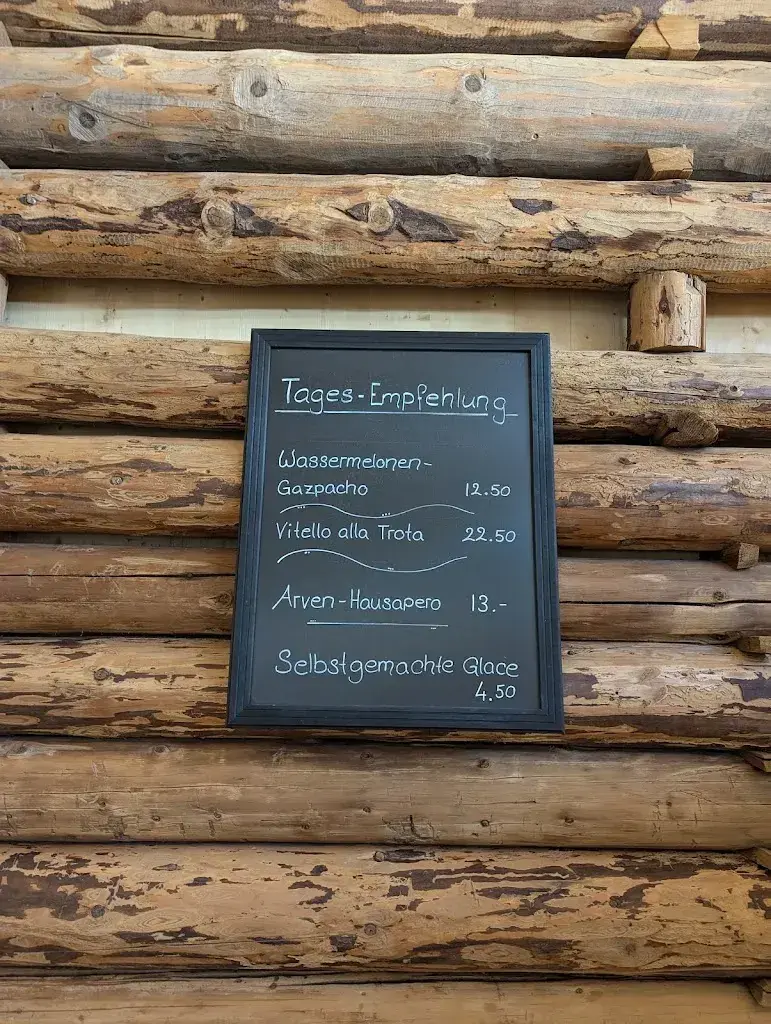 Tages-Empfehlung
Wassermelonen-
Gazpacho 12.50
Vitello alla Trota 22.50
Arven-Hausapero 13.-
Selbstgemachte Glace
4.50